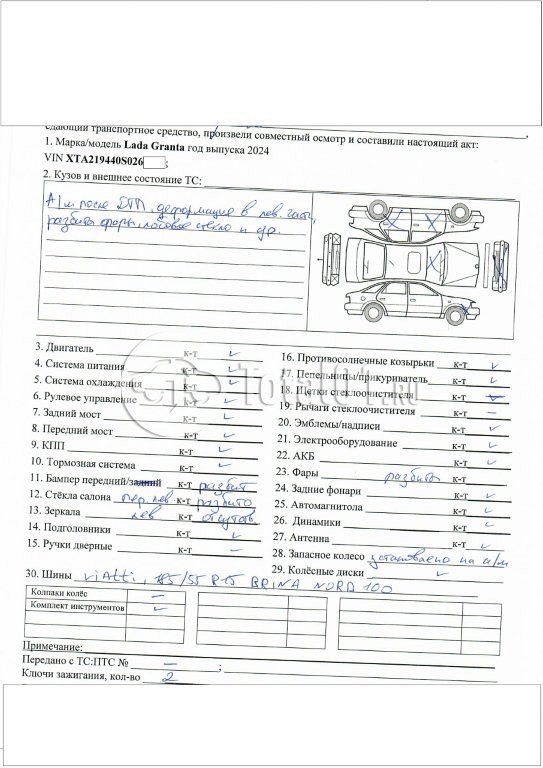 сдающий транспортное средство, произвели совместный осмотр и составили настоящий акт:
1. Марка/модель Lada Granta год выпуска 2024
VIN XTA219440S026;
2. Кузов и внешнее состояние ТС:
А/м после ДТП, деформация в лев. части,
разбиты фары, лобовое стекло и др.
3. Двигатель к-т ✓
4. Система питания к-т ✓
5. Система охлаждения к-т ✓
6. Рулевое управление к-т ✓
7. Задний мост к-т ✓
8. Передний мост к-т ✓
9. КПП к-т ✓
10. Тормозная система к-т ✓
11. Бампер передний/задний к-т разбит
12. Стёкла салона пер. лев. к-т разбито
13. Зеркала лев к-т отсутств.
14. Подголовники к-т ✓
15. Ручки дверные к-т –
16. Противосолнечные козырьки к-т ✓
17. Пепельницы/прикуриватель к-т ✓
18. Щетки стеклоочистителя к-т ✓
19. Рычаги стеклоочистителя к-т –
20. Эмблемы/надписи к-т ✓
21. Электрооборудование к-т ✓
22. АКБ к-т ✓
23. Фары разбиты к-т
24. Задние фонари к-т ✓
25. Автомагнитола к-т ✓
26. Динамики к-т ✓
27. Антенна к-т ✓
28. Запасное колесо установлено на а/м
29. Колёсные диски ✓
Total01.ru
30. Шины Viatti, 185/55 R-15 BRINA NORD 100
Колпаки колёс –
Комплект инструментов ✓
Примечание:
Передано с ТС:ПТС № – ;
Ключи зажигания, кол-во 2